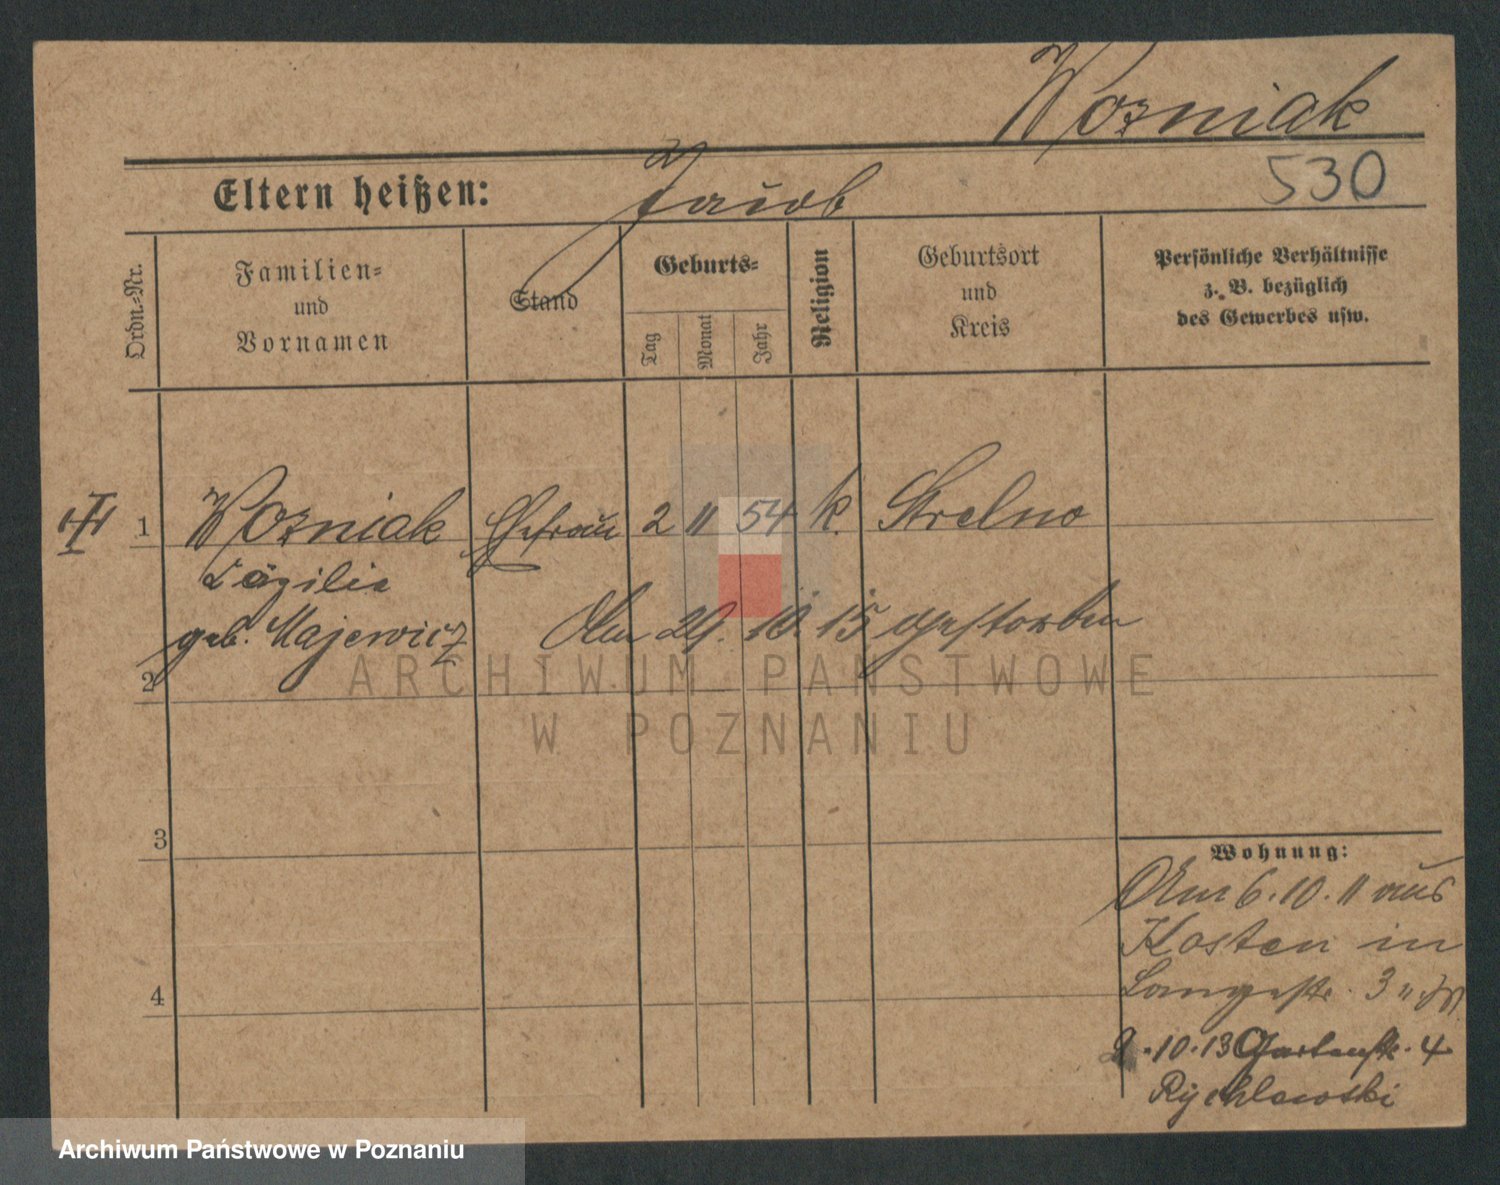 Wozniak
Eltern heißen: Jacob 530
Ordn.=Nr.
Familien=
und
Vornamen
Stand
Geburts=
Tag
Monat
Jahr
Religion
Geburtsort
und
Kreis
Persönliche Verhältnisse
z. B. bezüglich
des Gewerbes usw.
1 Wozniak Ehefrau 2 11 54 k. Strelno
Cäzilie
geb. Majewicz Am 29. 10. 15 gestorben
2
ARCHIWUM PAŃSTWOWE
W POZNANIU
3
Wohnung:
Am 6.10.11 aus
Kosten in
4
Langestr. 3
.10.13 Gartenstr. 4
Rychlewski
Archiwum Państwowe w Poznaniu